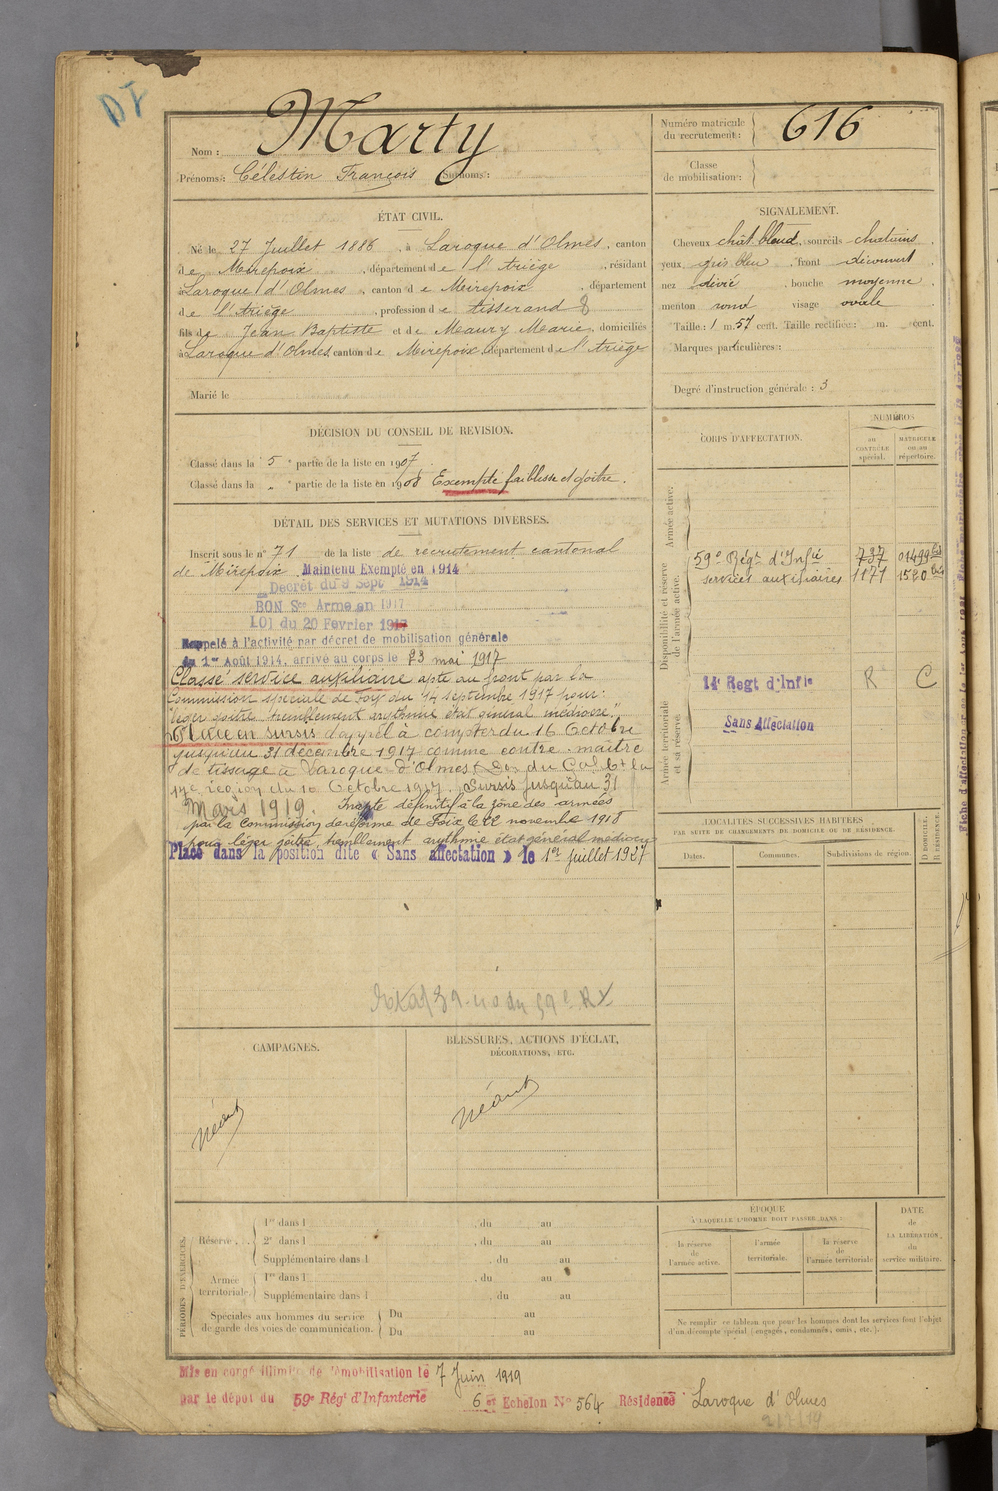 DI
Nom : Marty
Prénoms : Célestin François Surnoms :
Numéro matricule du recrutement : 616
Classe de mobilisation :
ÉTAT CIVIL.
Né le 27 Juillet 1886, à Laroque d'Olmes, canton
de Mirepoix, département de l'Ariège, résidant
à Laroque d'Olmes, canton de Mirepoix, département
de l'Ariège, profession de tisserand 8
fils de Jean Baptiste et de Maury Marie, domiciliés
à Laroque d'Olmes, canton de Mirepoix, département de l'Ariège
Marié le
SIGNALEMENT.
Cheveux chât. blond, sourcils chatains,
yeux gris bleu, front découvert,
nez dévié, bouche moyenne,
menton rond visage ovale
Taille : 1 m. 57 cent. Taille rectifiée : m. cent.
Marques particulières :
Degré d'instruction générale : 3
DÉCISION DU CONSEIL DE REVISION.
Classé dans la 5e partie de la liste en 1907
Classé dans la " partie de la liste en 1908 Exempté faiblesse et goitre.
DÉTAIL DES SERVICES ET MUTATIONS DIVERSES.
Inscrit sous le n° 71 de la liste de recrutement cantonal
de Mirepoix. Maintenu Exempté en 1914
Décret du 9 Sept 1914
BON Sce Armé en 1917
LOI du 20 Fevrier 1917
Rappelé à l'activité par décret de mobilisation générale
du 1er Août 1914, arrivé au corps le 23 mai 1917
Classé service auxiliaire apte au front par la
Commission spéciale de Foix du 14 septembre 1917 pour :
"léger goitre tremblement arythmie état général médiocre".
Placé en sursis d'appel à compter du 16 Octobre
jusqu'au 31 décembre 1917 comme contre-maître
de tissage à Laroque d'Olmes
17e région du 10 Octobre 1917. Sursis jusqu'au 31
Mars 1919. Inapte définitif à la zône des armées
par la Commission de réforme de Foix le 22 novembre 1918
pour léger goitre, tremblement arythmie état général médiocre
Placé dans la position dite « Sans affectation » le 1er Juillet 1927
CORPS D'AFFECTATION.
NUMÉROS
au CONTRÔLE spécial.
MATRICULE ou au répertoire.
Armée active.
Disponibilité et réserve de l'armée active.
59e Régt d'Infie 737 01499 bis
services auxiliaires 1171 1520 bis
Armée territoriale et sa réserve.
14e Regt d'Infie R C
Sans Affectation
LOCALITÉS SUCCESSIVES HABITÉES
PAR SUITE DE CHANGEMENTS DE DOMICILE OU DE RÉSIDENCE.
Dates. Communes. Subdivisions de région. D DOMICILE. R RÉSIDENCE.
CAMPAGNES.
Néant
BLESSURES, ACTIONS D'ÉCLAT,
DÉCORATIONS, ETC.
Néant
PÉRIODES D'EXERCICES.
Réserve. 1re dans l du au
2e dans l du au
Supplémentaire dans l du au
Armée territoriale. 1re dans l du au
Supplémentaire dans l du au
Spéciales aux hommes du service de garde des voies de communication. Du au
Du au
ÉPOQUE
À LAQUELLE L'HOMME DOIT PASSER DANS :
la réserve de l'armée active.
l'armée territoriale.
la réserve de l'armée territoriale
DATE de LA LIBÉRATION du service militaire.
Ne remplir ce tableau que pour les hommes dont les services font l'objet
d'un décompte spécial (engagés, condamnés, omis, etc.).
Mis en congé illimité de démobilisation le 7 Juin 1919
par le dépot du 59e Régt d'Infanterie 6 er Echelon N° 564 Résidence Laroque d'Olmes